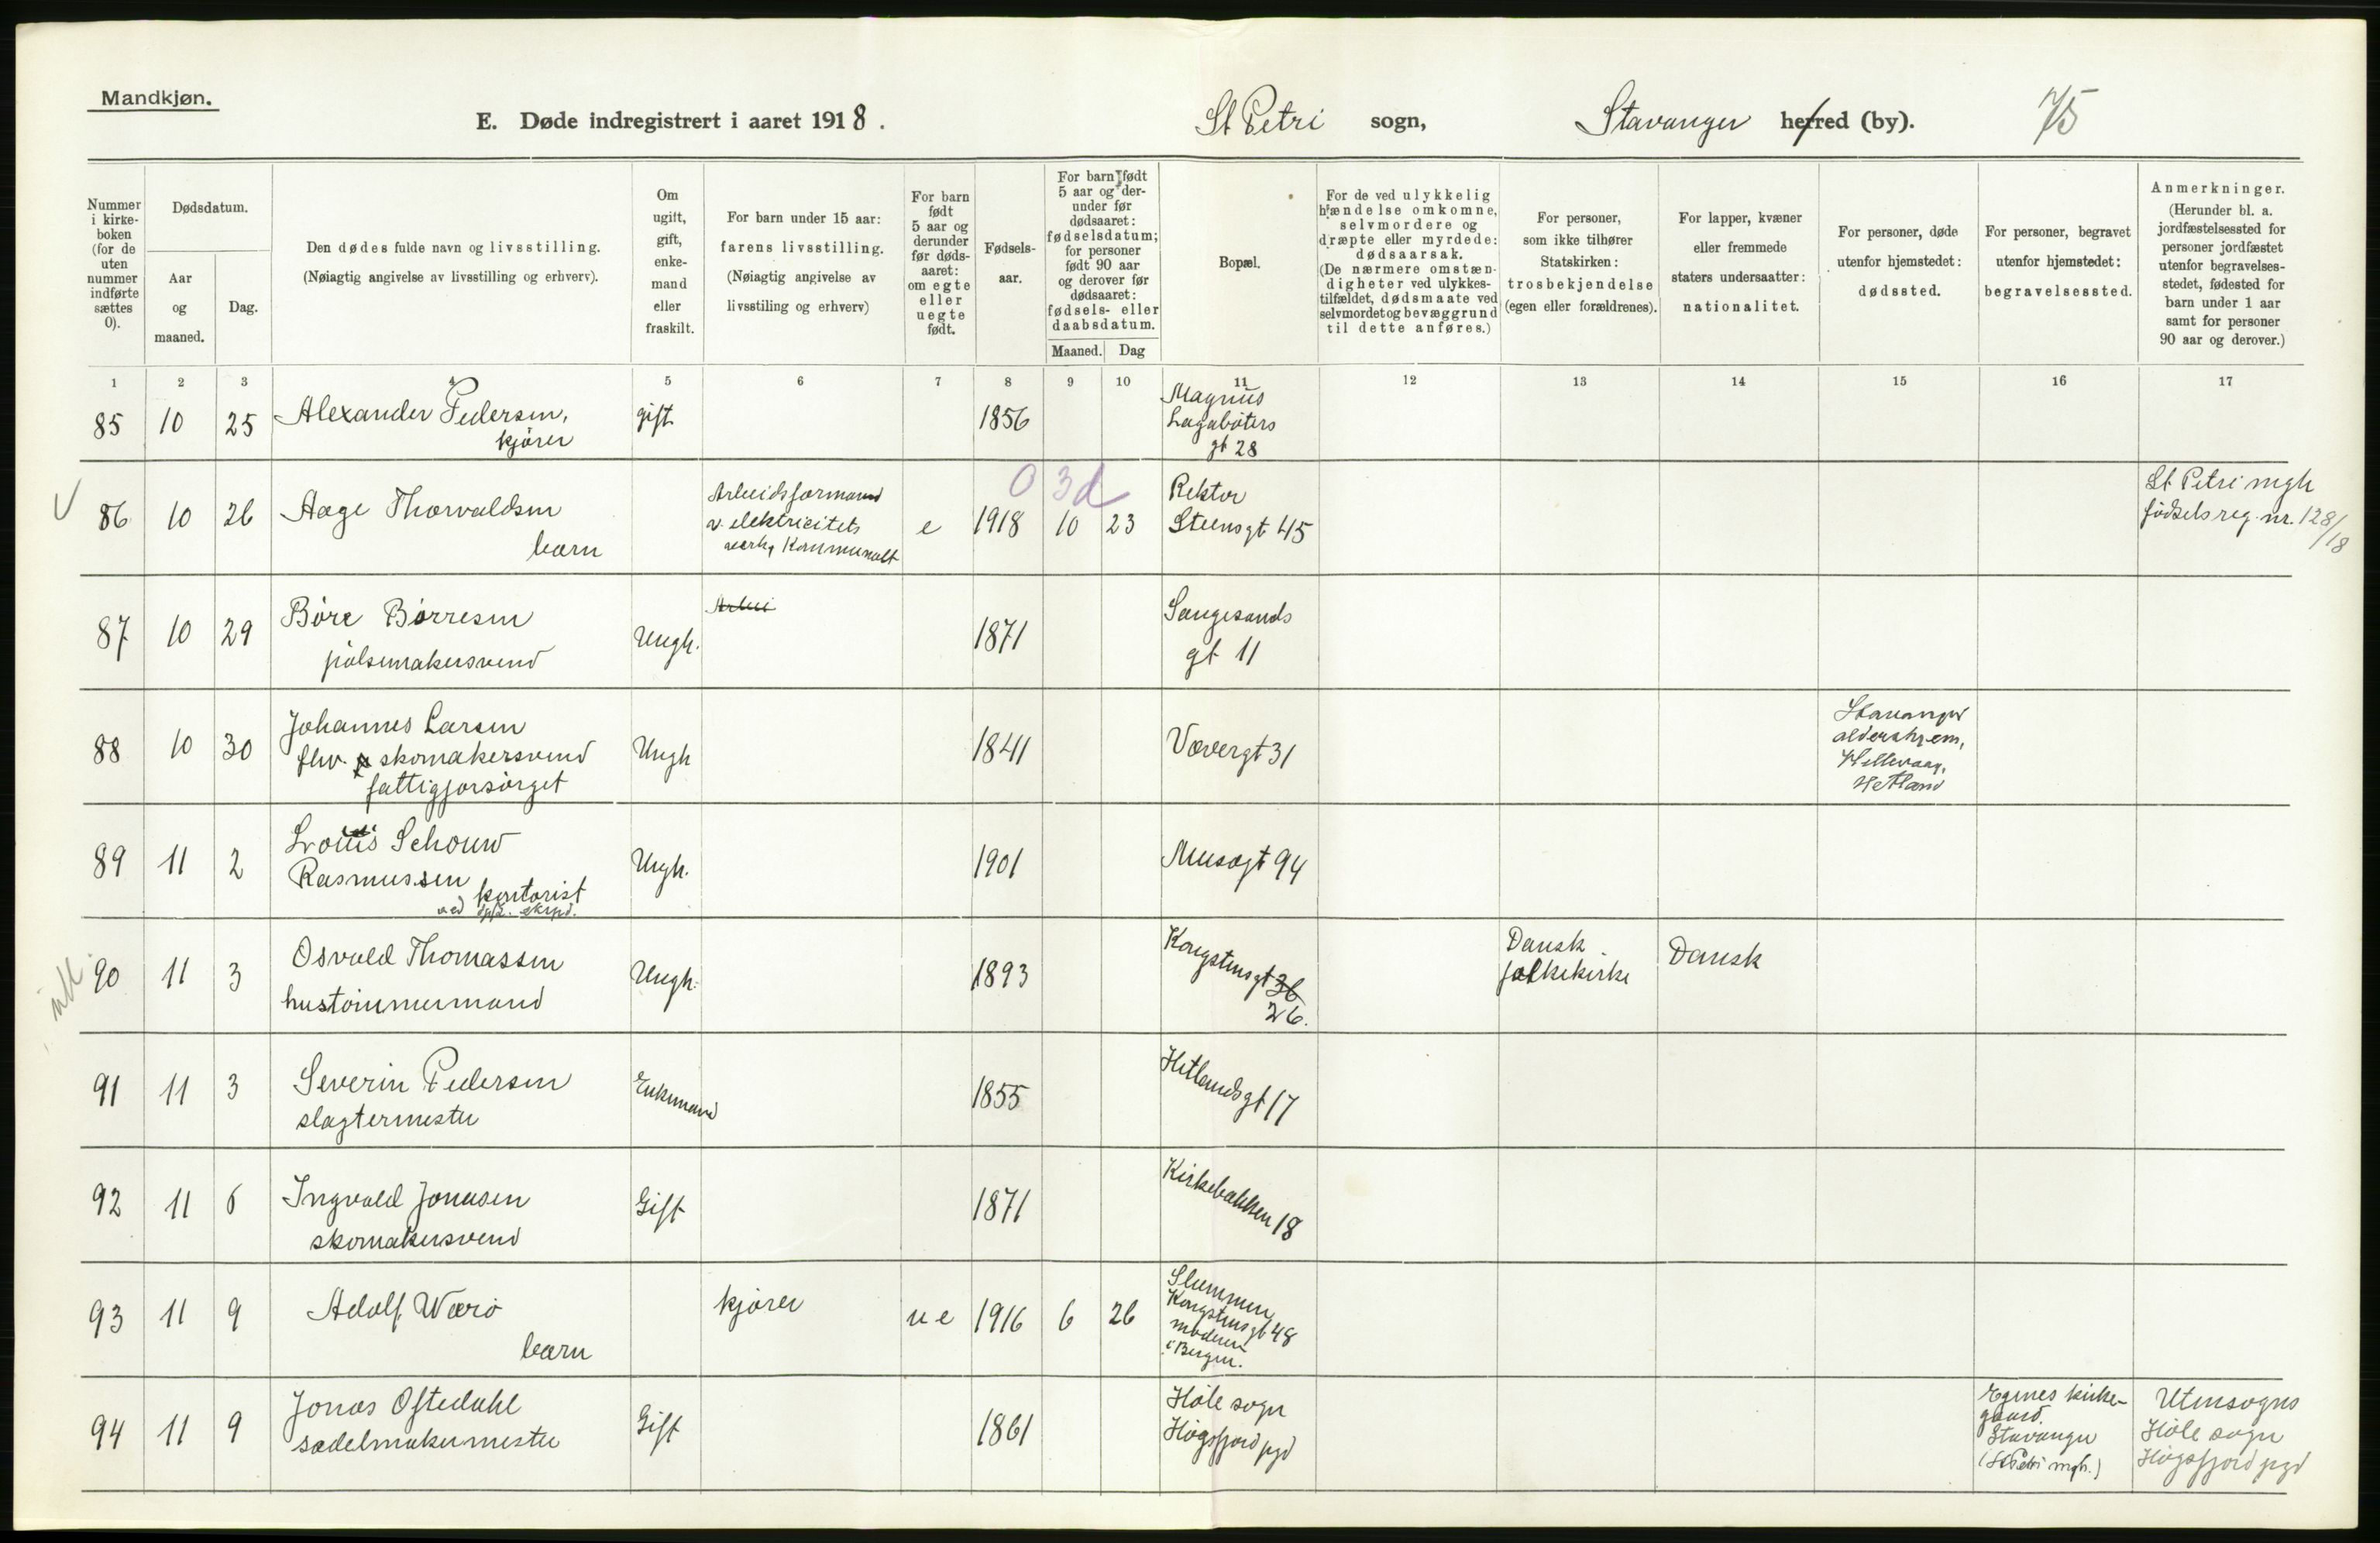 Mandkjøn.
E. Døde indregistrert i aaret 1918.
St Petri sogn,
Stavanger herred (by).
75
Nummer i kirke-boken (for de uten nummer indførte sættes 0).
Dødsdatum.
Aar og maaned.
Dag.
Den dødes fulde navn og livsstilling.
(Nøiagtig angivelse av livsstilling og erhverv).
Om ugift, gift, enke-mand eller fraskilt.
For barn under 15 aar:
farens livsstilling.
(Nøiagtig angivelse av
livsstiling og erhverv)
For barn født 5 aar og derunder før døds-aaret: om egte eller uegte født.
Fødsels-aar.
For barn født 5 aar og der-under før dødsaaret: fødselsdatum; for personer født 90 aar og derover før dødsaaret: fødsels- eller daabsdatum.
Maaned.
Dag
Bopæl.
For de ved ulykkelig hændelse omkomne, selvmordere og dræpte eller myrdede: dødsaarsak.
(De nærmere omstæn-digheter ved ulykkes-tilfældet, dødsmaate ved selvmordet og bevæggrund til dette anføres.)
For personer, som ikke tilhører Statskirken: trosbekjendelse (egen eller forældrenes).
For lapper, kvæner eller fremmede staters undersaatter: nationalitet.
For personer, døde utenfor hjemstedet: dødssted.
For personer, begravet utenfor hjemstedet: begravelsessted.
Anmerkninger.
(Herunder bl. a. jordfæstelsessted for personer jordfæstet utenfor begravelses-stedet, fødested for barn under 1 aar samt for personer 90 aar og derover.)
1 2 3 4 5 6 7 8 9 10 11 12 13 14 15 16 17
85 10 25 Alexander Pedersen, gift 1856 Magnus
kjører
Lagabøters
gt 28
0 3d
86 10 26 Aage Thorvaldsen
barn
Arbeidsformand
v. elektricitets
verk, Kommunalt
e 1918 10 23
Rektor
Steensgt 45
St Petri mgh
fødselsreg. nr. 128/18
87 10 29 Børe Børresen
pølsemakersvend
Ungk.
Arbei
1871
Sangesands
gt 11
88 10 30 Johannes Larsen
fhv. skomakersvend
fattigforsørget
Ungk
1841
Vævergt 31
Stavanger
aldershjem,
Hillevaag,
Hetland
89 11 2 Louis Schouw
Rasmussen
kontorist
ved
Ungk.
1901
Musøgt 94
90 11 3 Osvald Thomassen
hustømmermand
Ungk.
1893
Kongstensgt 36
26.
Dansk
folkekirke
Dansk
91 11 3 Severin Pedersen
slagtermester
Enkemand
1855
Hetlandsgt 17
92 11 6 Ingvald Jonassen
skomakersvend
Gift
1871
Kirkebakken 18
93 11 9 Adolf Wærø
barn
kjører
u e 1916 6 26
Slummen
Kongstensgt 48
moderen
i Bergen.
94 11 9 Jonas Oftedahl
sadelmakermester
Gift
1861
Høle sogn
Høgsfjord pgd
Egenes kirke-
gaard.
Stavanger
(St Petri mgh.)
Utensogns
Høle sogn
Høgsfjord pgd